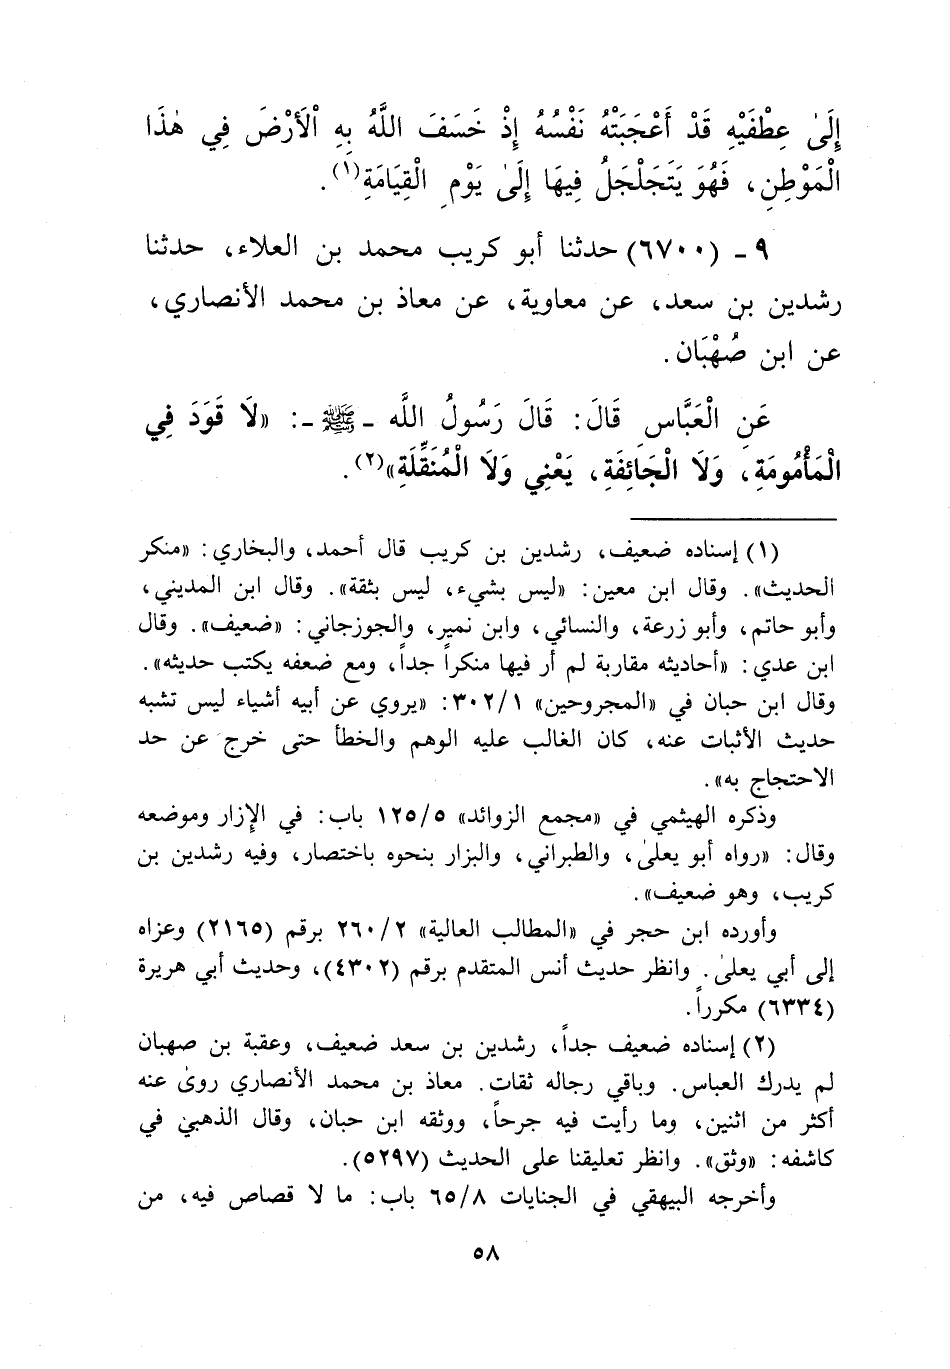 إِلَىٰ عِطْفَيْهِ قَدْ أَعْجَبَتْهُ نَفْسُهُ إِذْ خَسَفَ اللَّهُ بِهِ ٱلْأَرْضَ فِي هٰذَا
الْمَوْطِنِ، فَهُوَ يَتَجَلْجَلُ فِيهَا إِلَىٰ يَوْمِ الْقِيَامَةِ(١).
٩ ـ (٦٧٠٠) حدثنا أبو كريب محمد بن العلاء، حدثنا
رشدين بن سعد، عن معاوية، عن معاذ بن محمد الأنصاري،
عن ابن صُهْبَان.
عَنِ الْعَبَّاسِ قَالَ: قَالَ رَسُولُ اللَّه ـ ﷺ ـ: «لَا قَوَدَ فِي
الْمَأْمُومَةِ، وَلَا الْجَائِفَةِ، يَعْنِي وَلَا الْمُنَقِّلَةِ»(٢).
(١) إسناده ضعيف، رشدين بن كريب قال أحمد، والبخاري: «منكر
الحديث». وقال ابن معين: «ليس بشيء، ليس بثقة». وقال ابن المديني،
وأبو حاتم، وأبو زرعة، والنسائي، وابن نمير، والجوزجاني: «ضعيف». وقال
ابن عدي: «أحاديثه مقاربة لم أر فيها منكراً جداً، ومع ضعفه يكتب حديثه».
وقال ابن حبان في «المجروحين» ٣٠٢/١: «يروي عن أبيه أشياء ليس تشبه
حديث الأثبات عنه، كان الغالب عليه الوهم والخطأ حتى خرج عن حد
الاحتجاج به».
وذكره الهيثمي في «مجمع الزوائد» ١٢٥/٥ باب: في الإزار وموضعه
وقال: «رواه أبو يعلىٰ، والطبراني، والبزار بنحوه باختصار، وفيه رشدين بن
كريب، وهو ضعيف».
وأورده ابن حجر في «المطالب العالية» ٢٦٠/٢ برقم (٢١٦٥) وعزاه
إلى أبي يعلىٰ. وانظر حديث أنس المتقدم برقم (٤٣٠٢)، وحديث أبي هريرة
(٦٣٣٤) مكرراً.
(٢) إسناده ضعيف جداً، رشدين بن سعد ضعيف، وعقبة بن صهبان
لم يدرك العباس. وباقي رجاله ثقات. معاذ بن محمد الأنصاري روىٰ عنه
أكثر من اثنين، وما رأيت فيه جرحاً، ووثقه ابن حبان، وقال الذهبي في
كاشفه: «وثق». وانظر تعليقنا على الحديث (٥٢٩٧).
وأخرجه البيهقي في الجنايات ٦٥/٨ باب: ما لا قصاص فيه، من
٥٨